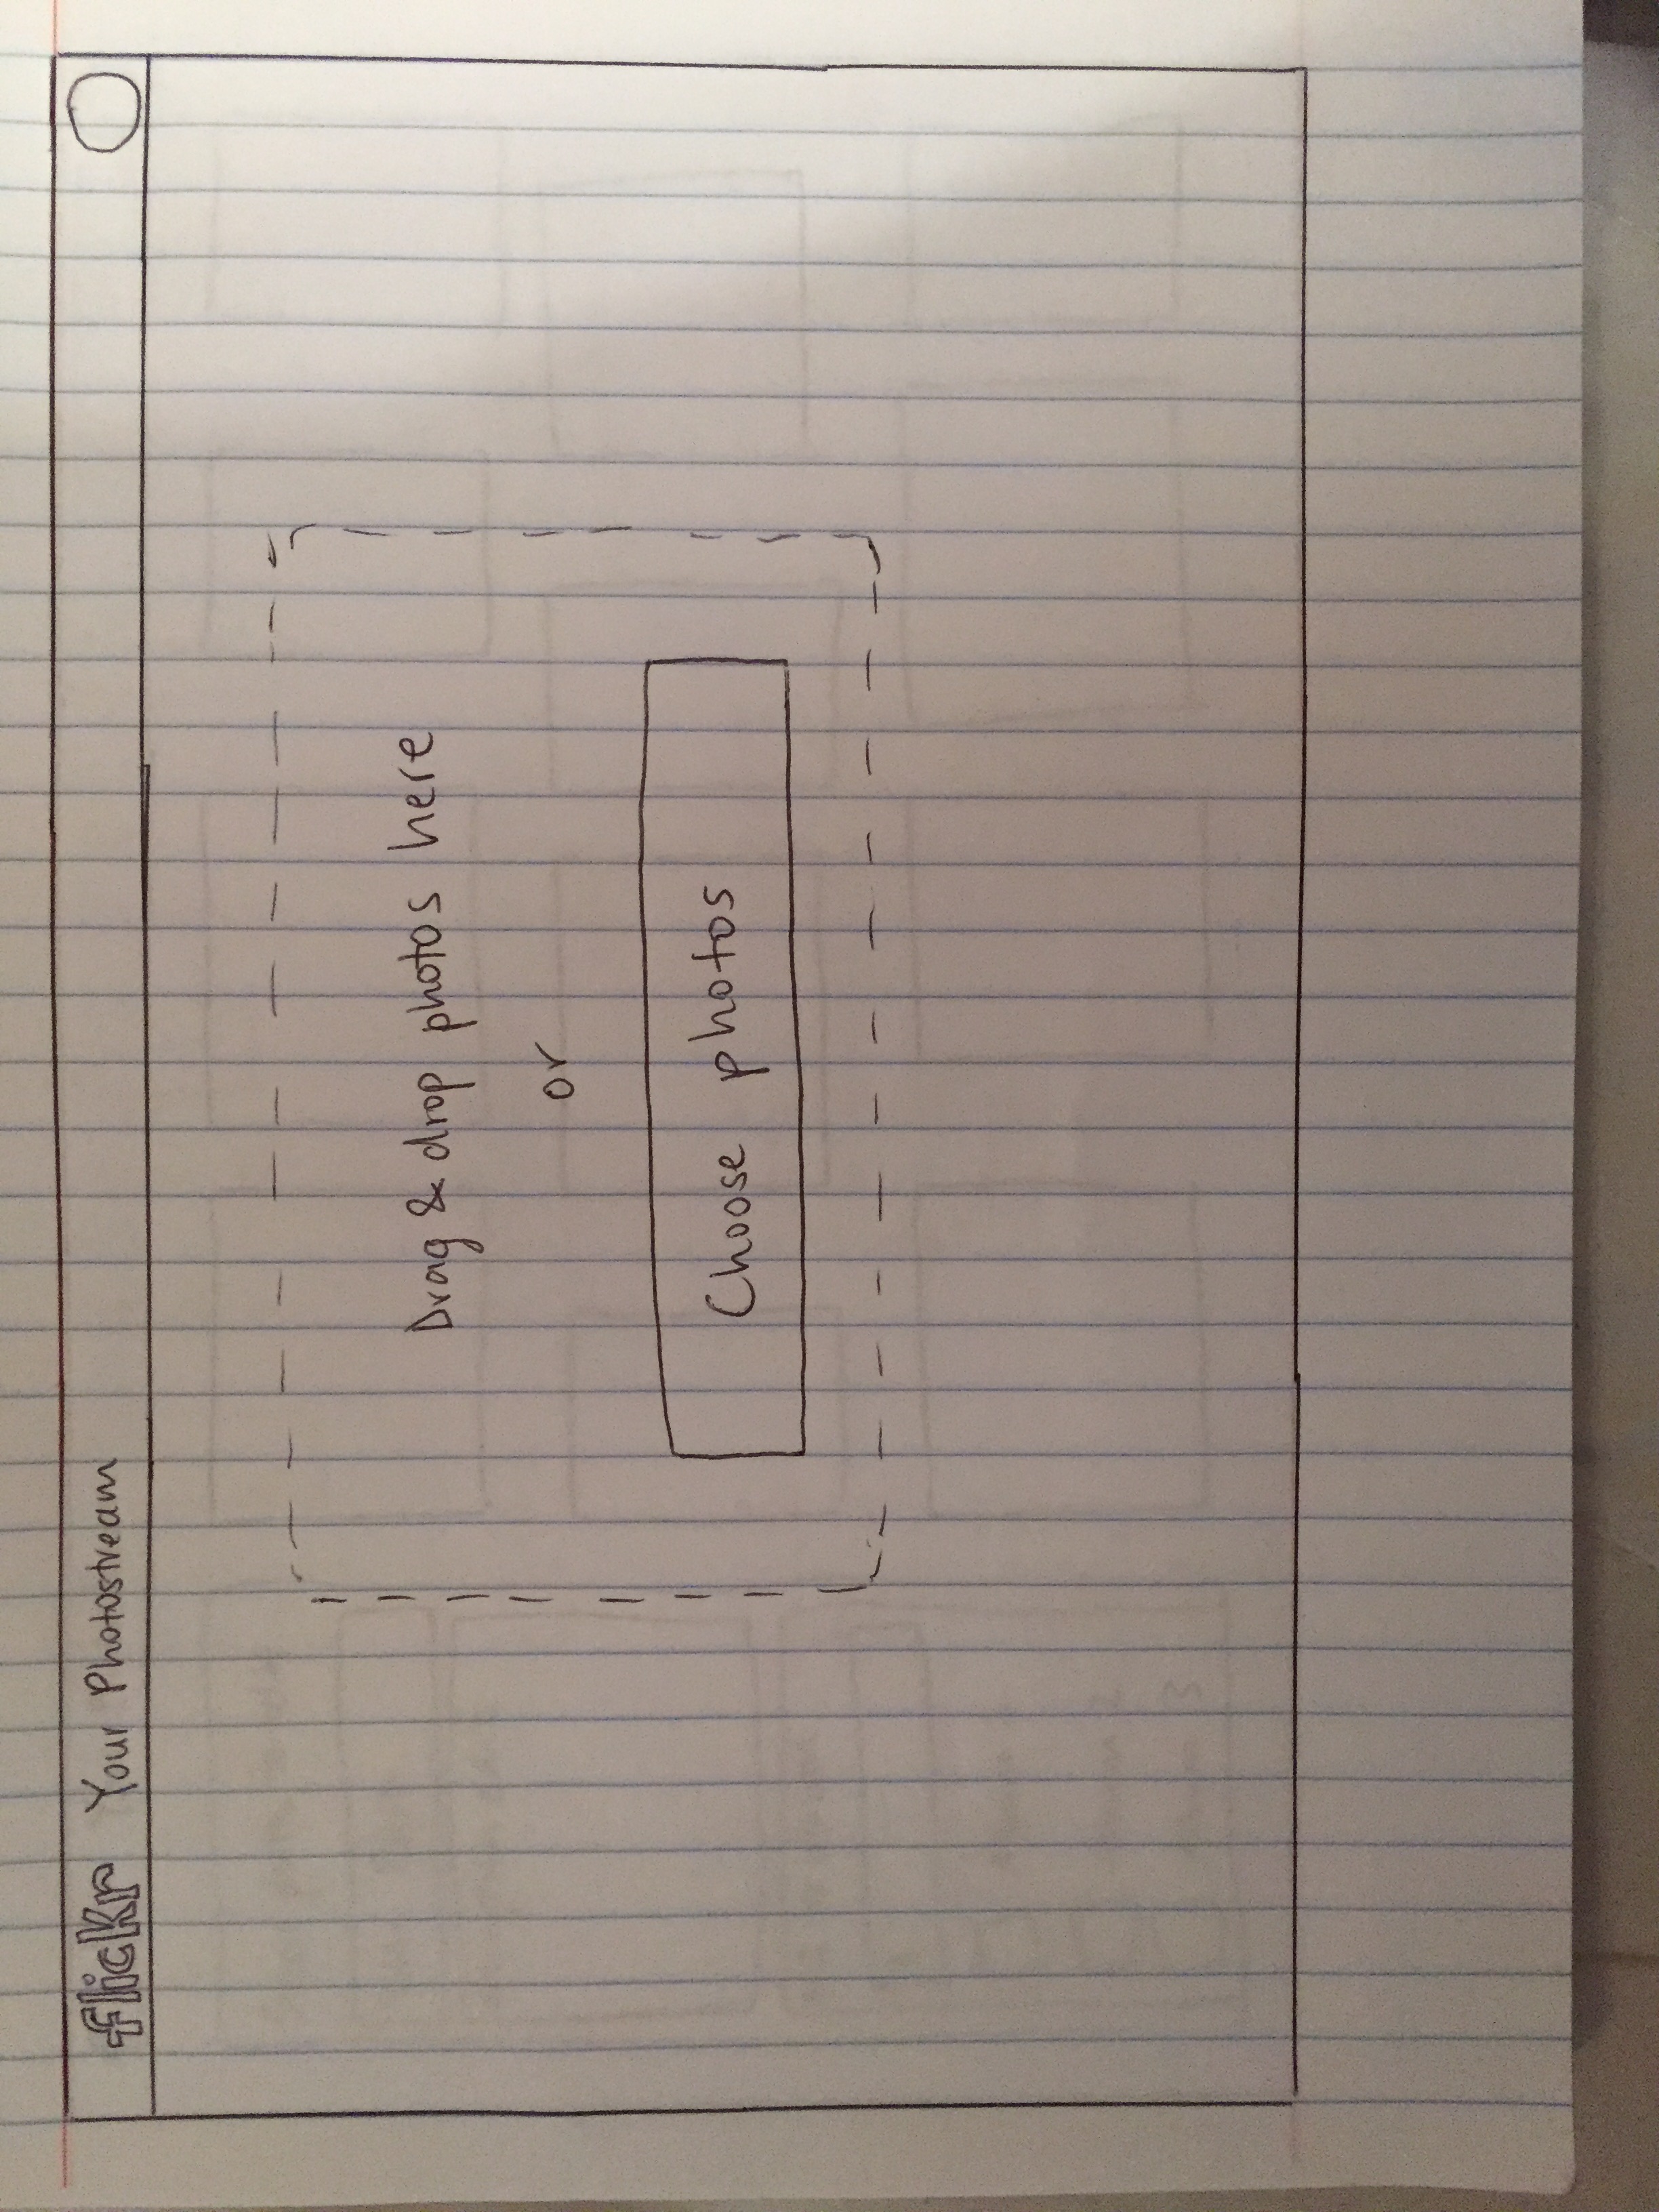 flickr Your Photostream
Drag & drop photos here
or
Choose photos